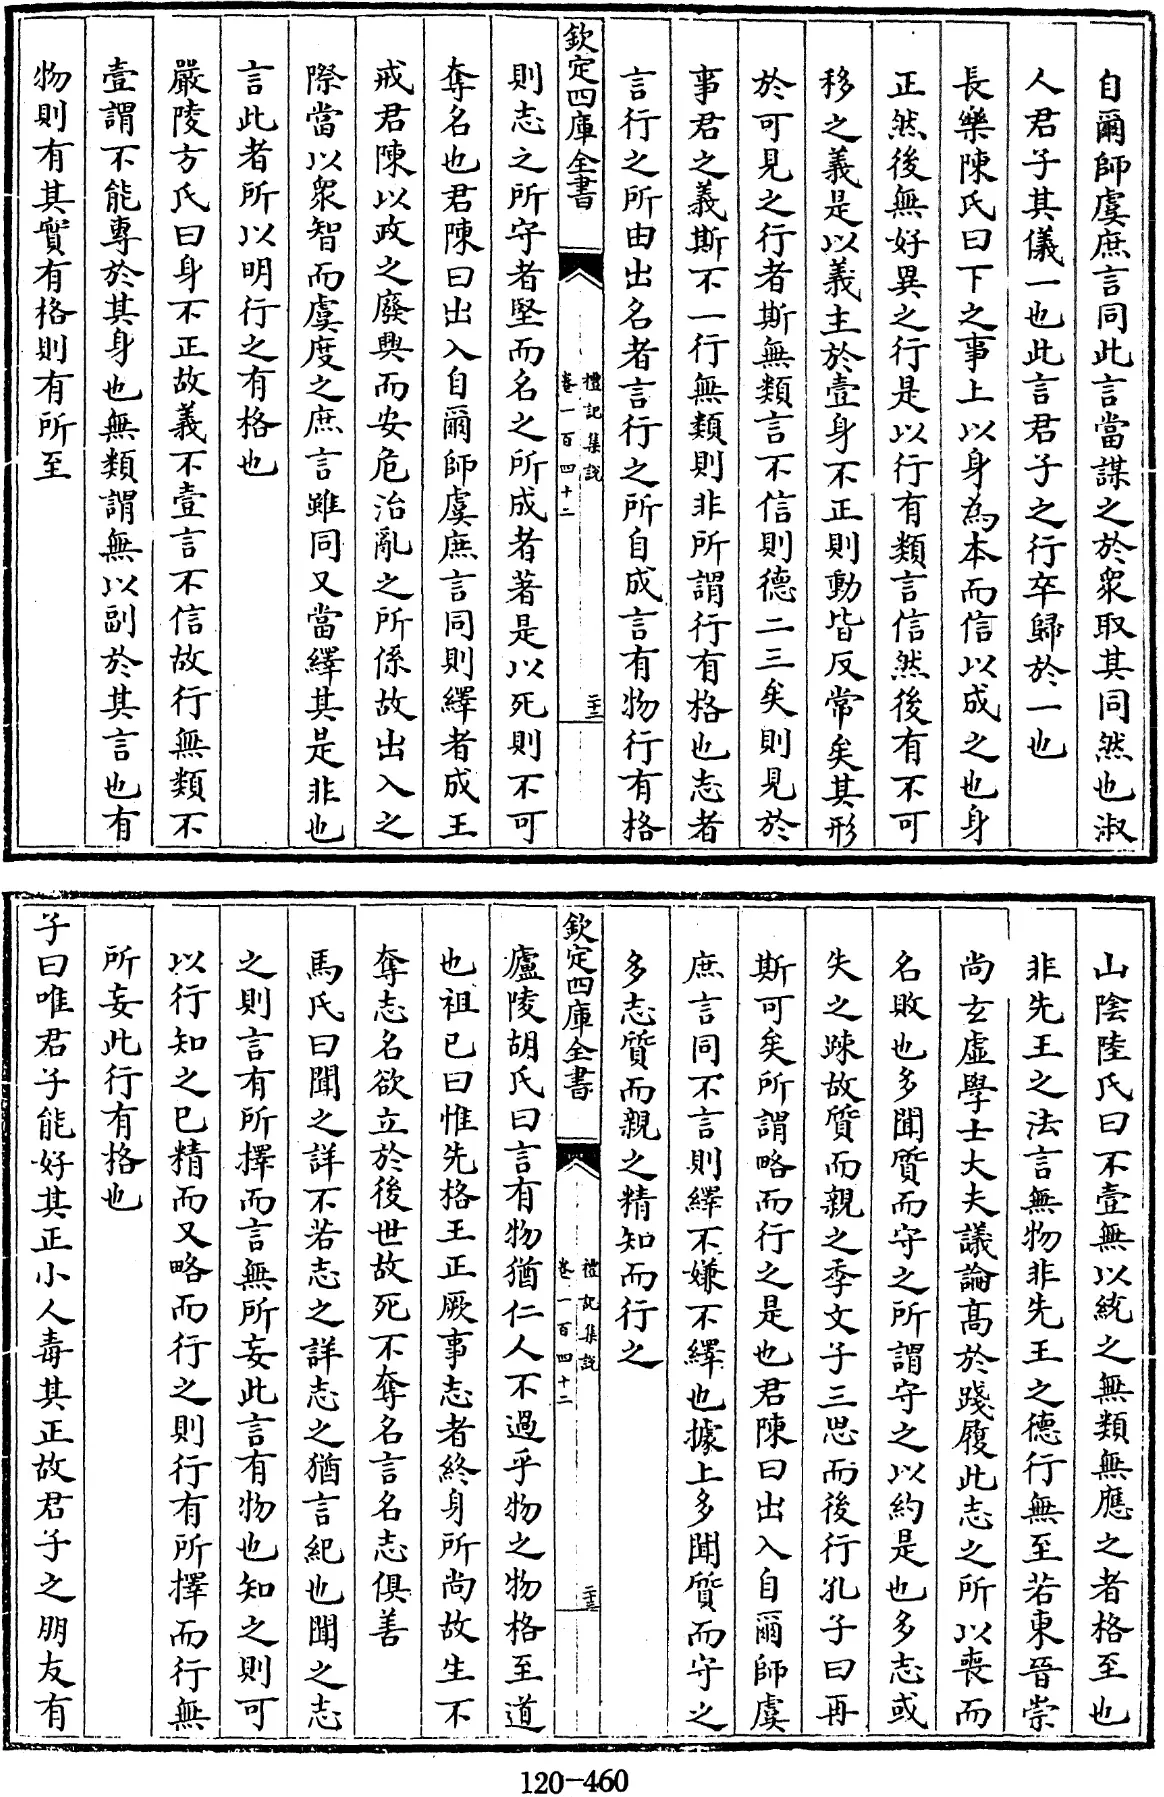 自爾師虞庶言同此言當謀之於衆取其同然也淑
人君子其儀一也此言君子之行卒歸於一也
長樂陳氏曰下之事上以身為本而信以成之也身
正然後無好異之行是以行有類言信然後有不可
移之義是以義主於壹身不正則動皆反常矣其形
於可見之行者斯無類言不信則德二三矣則見於
事君之義斯不一行無類則非所謂行有格也志者
言行之所由出名者言行之所自成言有物行有格
欽定四庫全書
禮記集說
卷一百四十二
二十三
則志之所守者堅而名之所成者著是以死則不可
奪名也君陳曰出入自爾師虞庶言同則繹者成王
戒君陳以政之廢興而安危治亂之所係故出入之
際當以衆智而虞度之庶言雖同又當繹其是非也
言此者所以明行之有格也
嚴陵方氏曰身不正故義不壹言不信故行無類不
壹謂不能專於其身也無類謂無以副於其言也有
物則有其實有格則有所至
山陰陸氏曰不壹無以統之無類無應之者格至也
非先王之法言無物非先王之德行無至若東晉崇
尚玄虛學士大夫議論高於踐履此志之所以喪而
名敗也多聞質而守之所謂守之以約是也多志或
失之疎故質而親之季文子三思而後行孔子曰再
斯可矣所謂略而行之是也君陳曰出入自爾師虞
庶言同不言則繹不嫌不繹也據上多聞質而守之
多志質而親之精知而行之
欽定四庫全書
禮記集說
卷一百四十二
二十三
廬陵胡氏曰言有物猶仁人不過乎物之物格至道
也祖已曰惟先格王正厥事志者終身所尚故生不
奪志名欲立於後世故死不奪名言名志俱善
馬氏曰聞之詳不若志之詳志之猶言紀也聞之志
之則言有所擇而言無所妄此言有物也知之則可
以行知之已精而又略而行之則行有所擇而行無
所妄此行有格也
子曰唯君子能好其正小人毒其正故君子之朋友有
120-460